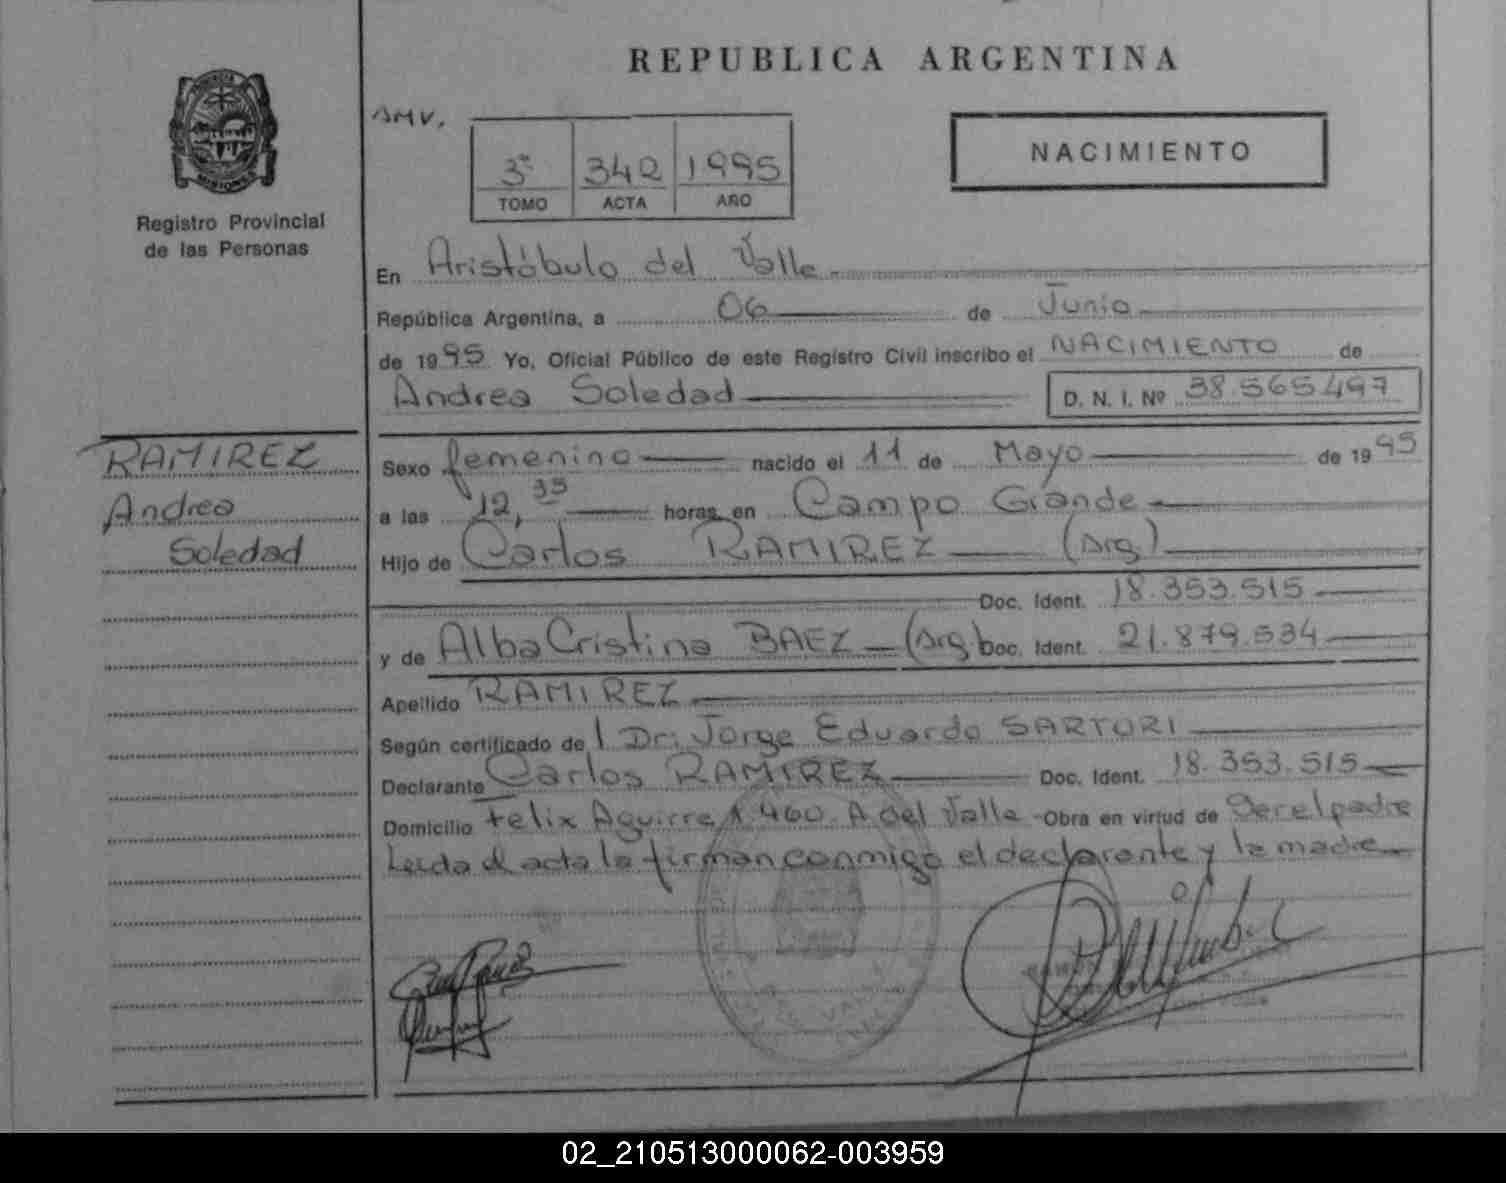 REPUBLICA ARGENTINA
MISIONES
Registro Provincial
de las Personas
AMV.
3º 342 1995
TOMO ACTA AÑO
NACIMIENTO
En Aristóbulo del Valle
República Argentina, a 06 de Junio
de 1995 Yo, Oficial Público de este Registro Civil inscribo el NACIMIENTO de
Andrea Soledad D. N. I. Nº 38.565.497
RAMIREZ
Andrea
Soledad
Sexo femenino nacido el 11 de Mayo de 1995
a las 12,35 horas, en Campo Grande
Hijo de Carlos RAMIREZ (Arg)
Doc. Ident. 18.353.515
y de Alba Cristina BAEZ (Arg) Doc. Ident. 21.879.534
Apellido RAMIREZ
Según certificado de Dr: Jorge Eduardo SARTORI
Declarante Carlos RAMIREZ Doc. Ident. 18.353.515
Domicilio Felix Aguirre 1.460 A del Valle - Obra en virtud de Ser el padre
Leida el acta la firman conmigo el declarante y la madre
02_210513000062-003959